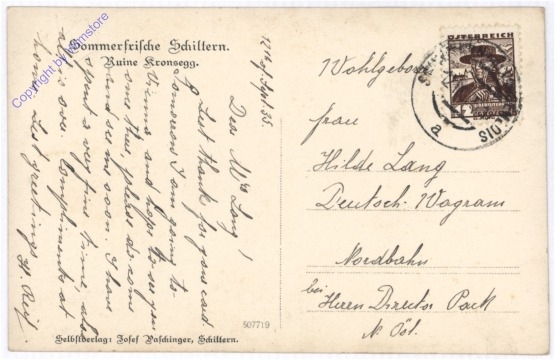 Sommerfrische Schiltern.
Ruine Kronsegg.
12th of Sept. 35.
Dear Mrs Lang!
Best thank for your card.
Tomorrow I am going to
Vienna and hope to see you
one thus, please do come
and see me soon. I have
spent a very fine time, also
all is over. Compliments at
home, best greetings H. Reif.
Selbstverlag: Josef Paschinger, Schiltern.
507719
ÖSTERREICH
12
a
Wohlgeboren
Frau
Hilde Lang
Deutsch-Wagram
Nordbahn
bei Herrn Director Pack
N. Öst.
Copyright by wamstore